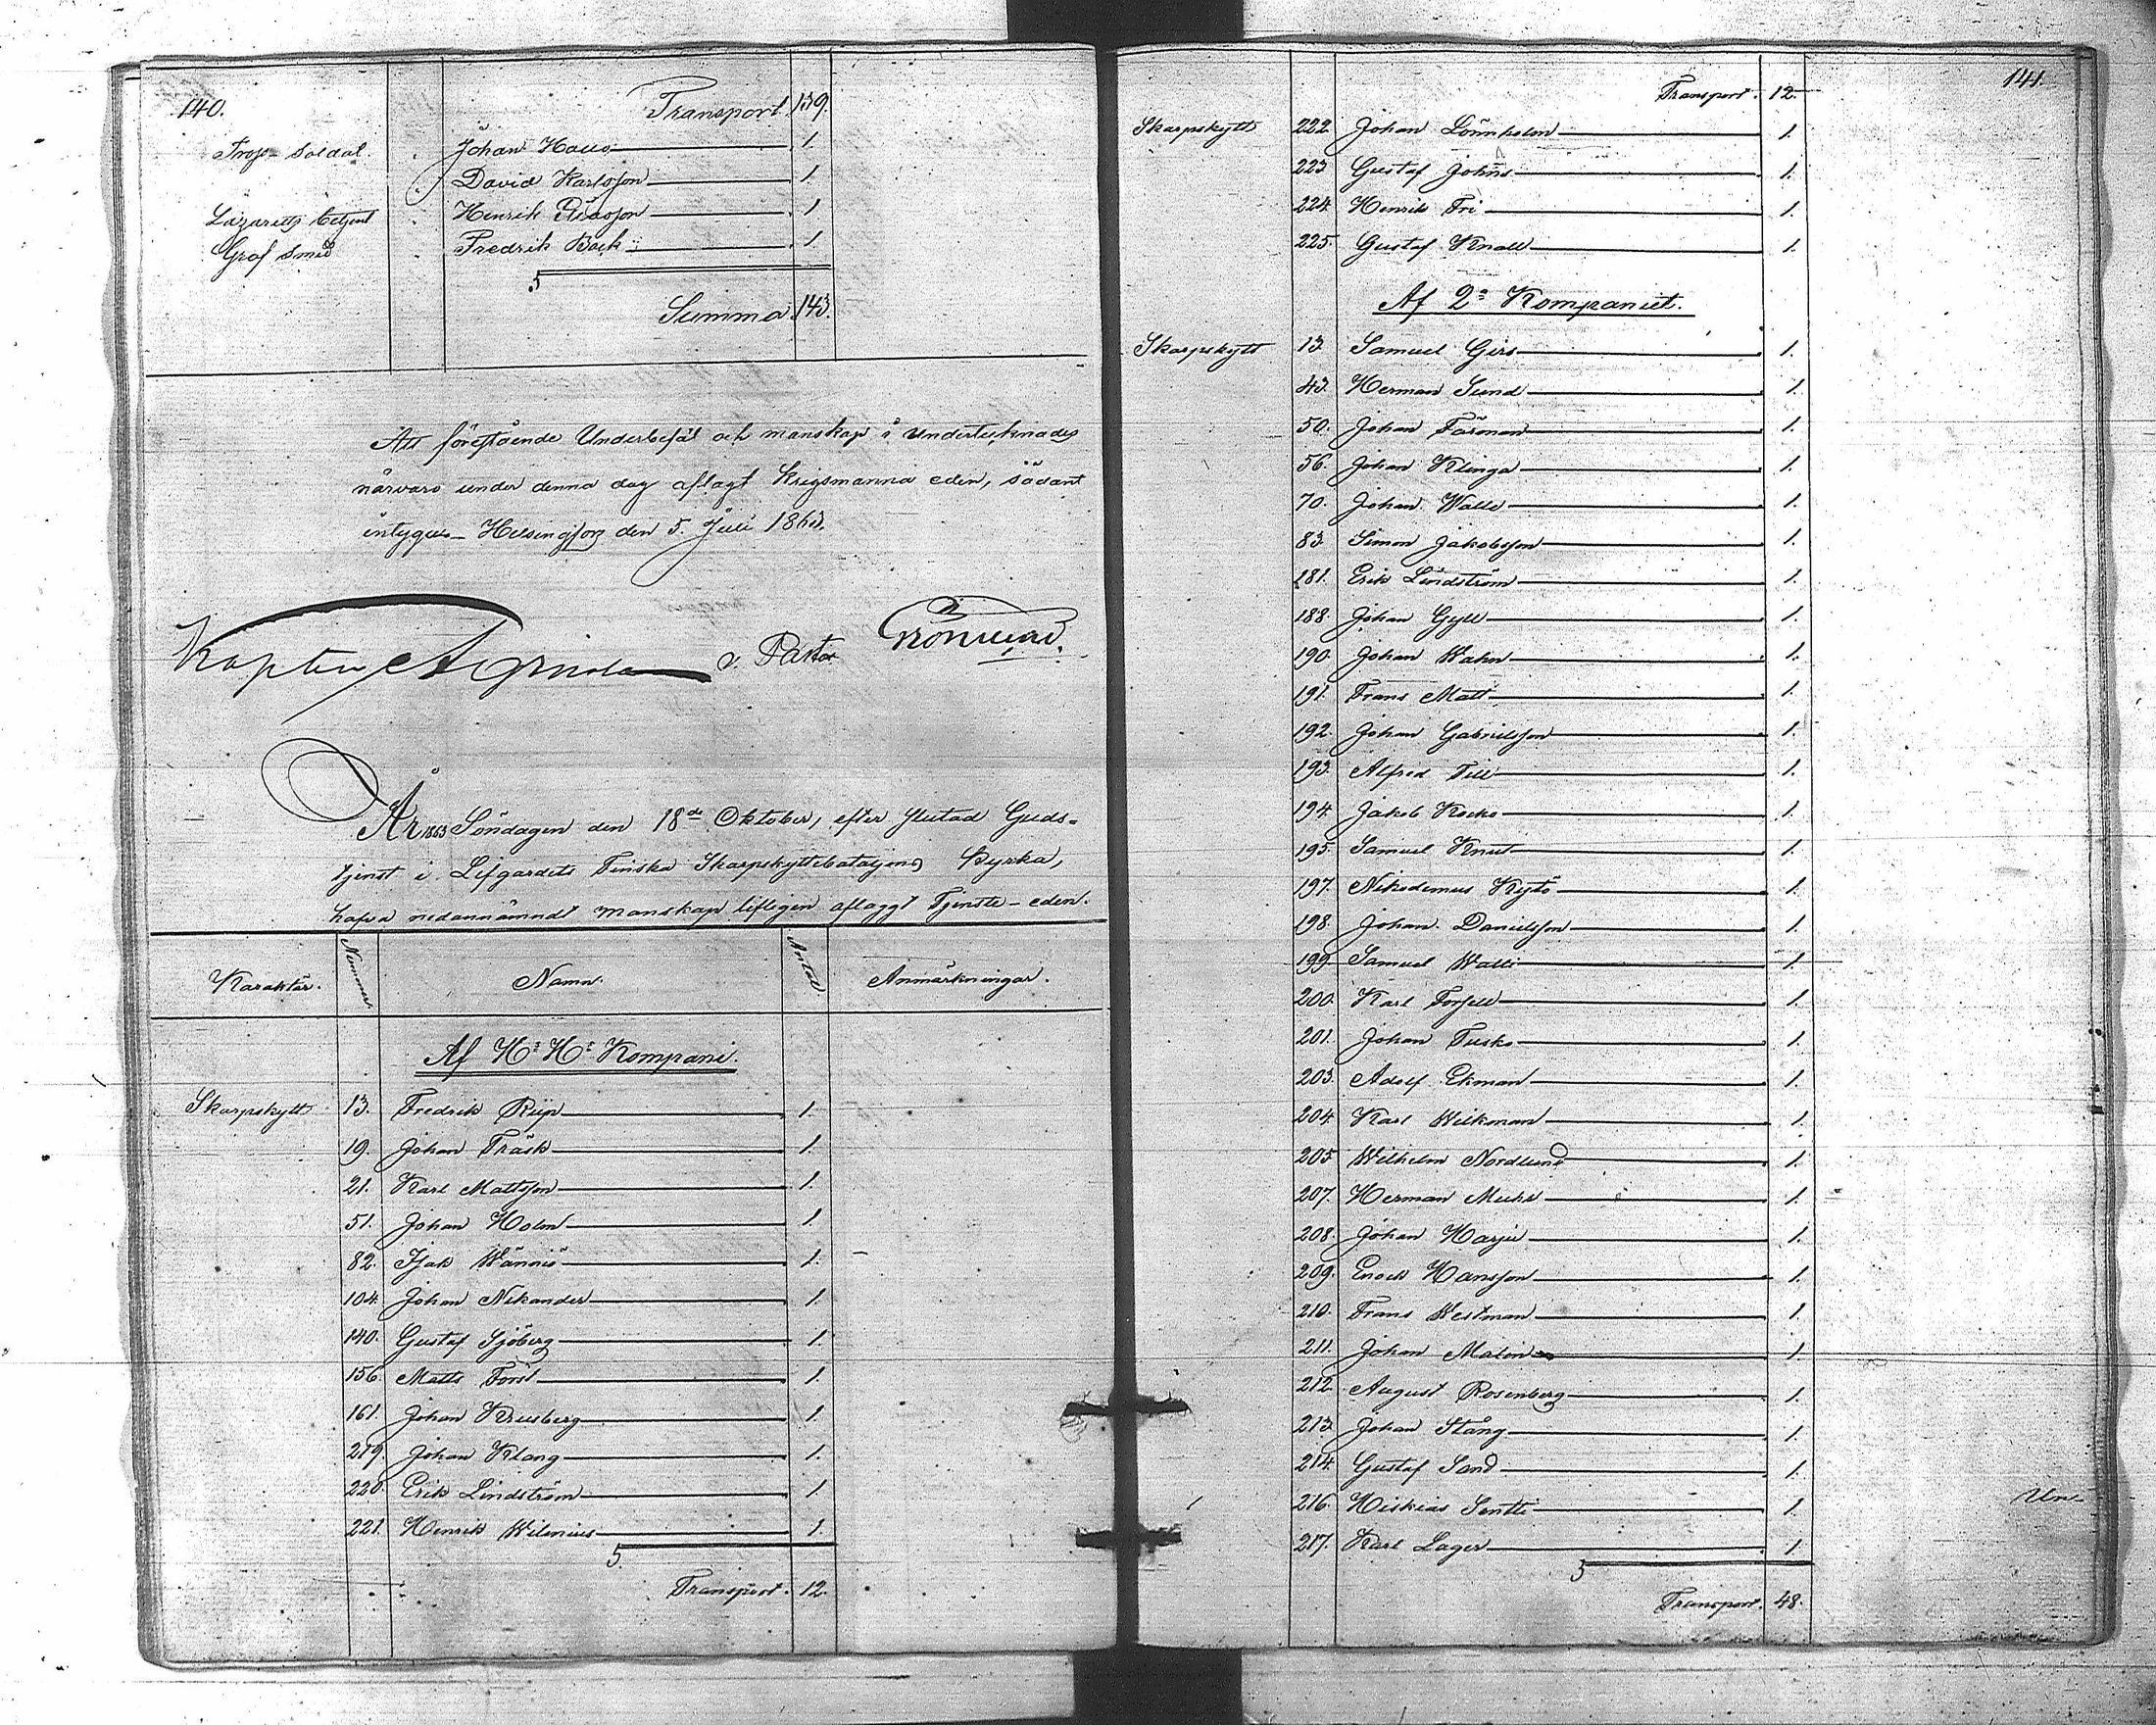 140.
Transport. 139.
Trop-soldat. Johan Haus 1.
David Karlsson 1.
Lazaretts betjent Henrik 1
Grof smed Fredrik Bock 1
5
Summa. 143.
Att förestående Underbefäl och manskap i undertecknades
närvaro under denna dag aflagt Krigsmanna eden, sådant
intygas. Helsingfors den 5. Juli 1863.
Kapten v. Pastor
År 1863 Söndagen den 18de Oktober, efter slutad Guds-
tjenst i Lifgardets Finska Skarpskyttebataljons Kyrka,
hafva nedannämndt manskap lifligen aflaggt Tjenste-eden.
Karaktär. Nummer Namn. Antal. Anmärkningar.
Af H:s H:s Kompani.
Skarpskytt 13. Fredrik Riip 1.
19. Johan Träsk 1.
21. Karl Mattsson 1.
51. Johan Holm 1.
82. Isak Wänniö 1.
104. Johan Nikander 1.
140. Gustaf Sjöberg 1.
156. Matts Först 1
161. Johan Krusberg 1
219. Johan Klang 1.
220. Erik Lindström 1
221. Henrik Wilenius 1.
5.
Transport. 12.
141.
Transport. 12.
Skarpskytt 222. Johan Lönnholm 1.
223 Gustaf Johns 1.
224. Henrik Fri 1.
225. Gustaf Knall 1.
Af 2:a Kompaniet.
Skarpskytt 13. Samuel Girs 1.
43. Herman Sund 1.
50. Johan Färman 1.
56. Johan Klinga 1.
70. Johan Walle 1.
83. Simon Jakobsson 1.
181. Erik Lindström 1.
188. Johan Gyll 1.
190. Johan Wahn 1.
191. Frans Matt 1.
192. Johan Gabrielsson 1.
193. Alfred Till 1.
194. Jakob Kocko 1.
195. Samuel Knut 1.
197. Nikodemus Kytö 1.
198. Johan Danielsson 1.
199 Samuel Walli 1.
200. Karl Forsell 1.
201. Johan Tusko 1.
203. Adolf Ekman 1.
204. Karl Wilkman 1.
205 Wilhelm Nordlund 1.
207. Herman 1.
208. Johan Harju 1.
209. Enock Hansson 1.
210. Frans Westman 1.
211. Johan Malin 1.
212. August Rosenberg 1.
213. Johan Stång 1.
214. Gustaf Sand 1.
216. Hiskias Sentti 1.
217. Karl Lager 1.
5
Transport. 48.
Un-